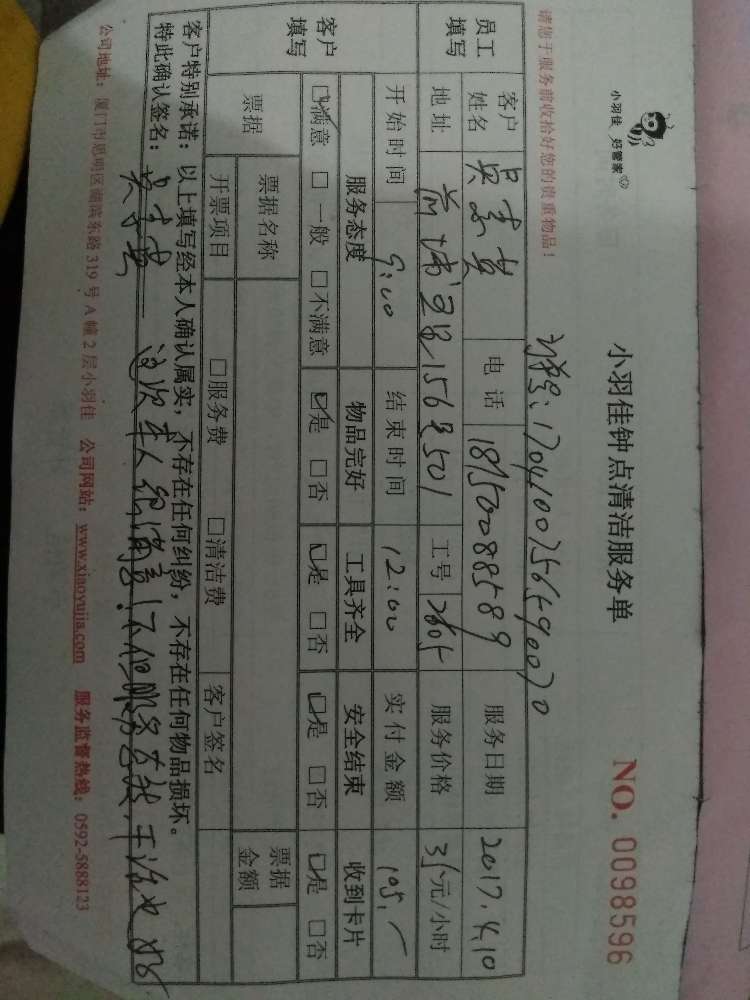 小羽佳 好管家
小羽佳钟点清洁服务单
NO. 0098596
请您于服务前收拾好您的贵重物品！
员工填写
客户姓名 电话 18150088589 服务日期 2017.4.10
地址 工号 服务价格 35元/小时
开始时间 9:00 结束时间 12:00 实付金额 105.-
客户填写
服务态度 物品完好 工具齐全 安全结束 收到卡片
☑满意 □一般 □不满意 ☑是 □否 ☑是 □否 ☑是 □否 ☑是 □否
票据 票据名称 票据金额
开票项目 □服务费 □清洁费 客户签名
客户特别承诺：以上填写经本人确认属实，不存在任何纠纷，不存在任何物品损坏。
特此确认签名：
公司地址：厦门市思明区湖滨东路319号A幢2层小羽佳 公司网站：www.xiaoyujia.com 服务监督热线：0592-5888123